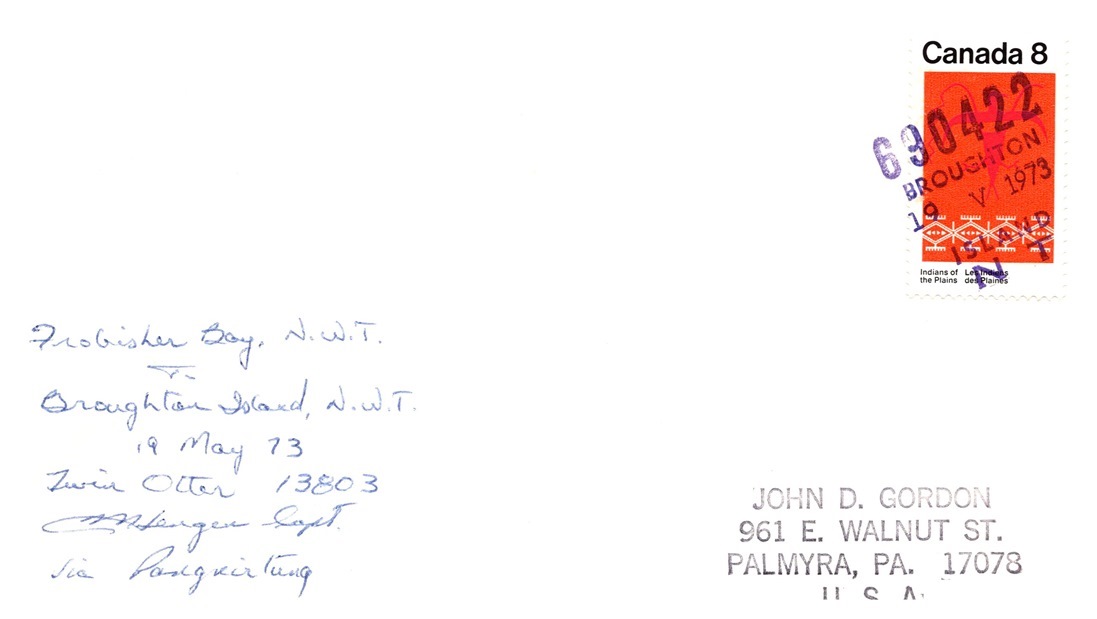 Canada 8
630422
BROUGHTON
19 V 1973
ISLAND
N T
Indians of Les Indiens
the Plains des Plaines
Frobisher Bay, N.W.T.
To
Broughton Island, N.W.T.
19 May 73
Twin Otter 13803
Capt.
Via Pangnirtung
JOHN D. GORDON
961 E. WALNUT ST.
PALMYRA, PA. 17078
U.S.A.